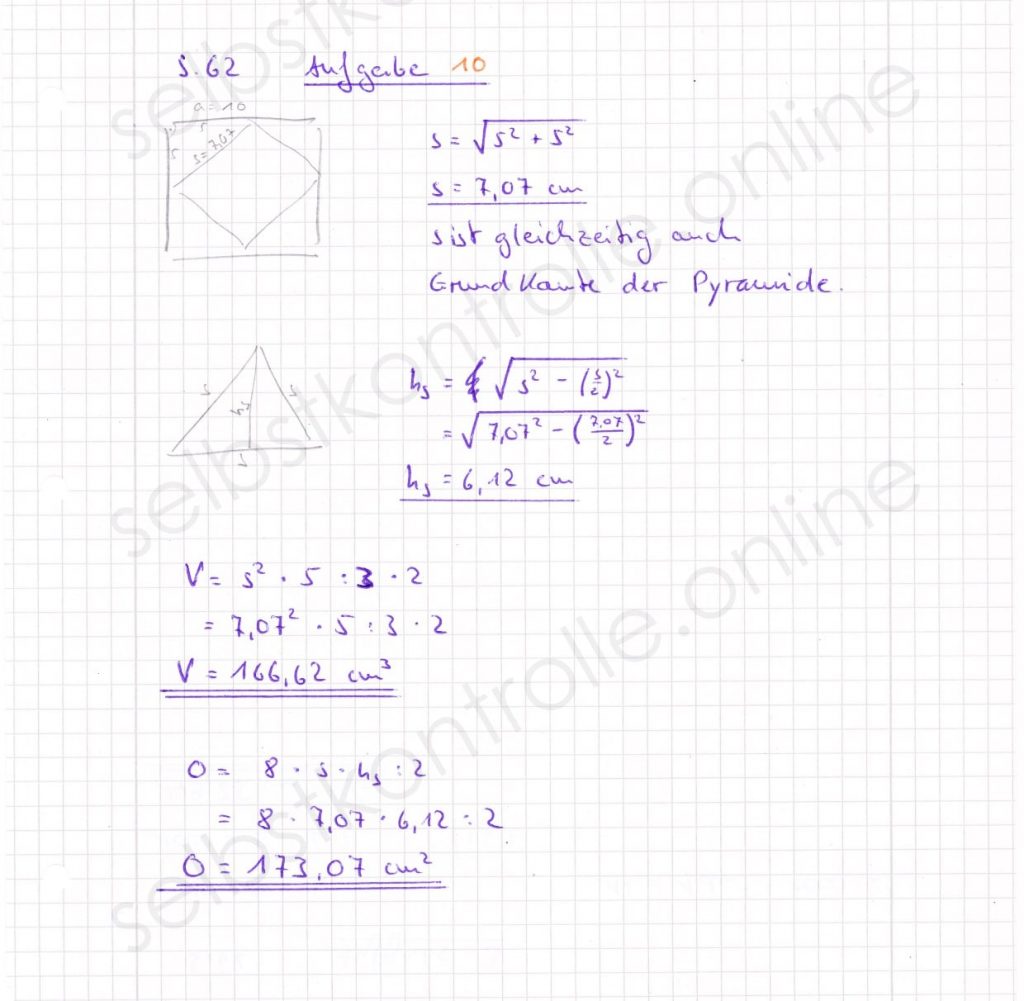 S. 62 Aufgabe 10
a = 10
5
5
s = 7,07
s = √(5² + 5²)
s = 7,07 cm
s ist gleichzeitig auch
Grundkante der Pyramide.
s
hs
s
s
hs = √(s² - (s/2)²)
= √(7,07² - (7,07/2)²)
hs = 6,12 cm
V = s² · 5 : 3 · 2
= 7,07² · 5 : 3 · 2
V = 166,62 cm³
O = 8 · s · hs : 2
= 8 · 7,07 · 6,12 : 2
O = 173,07 cm²
selbstkontrolle.online
selbstkontrolle.online
selbstkontrolle.online